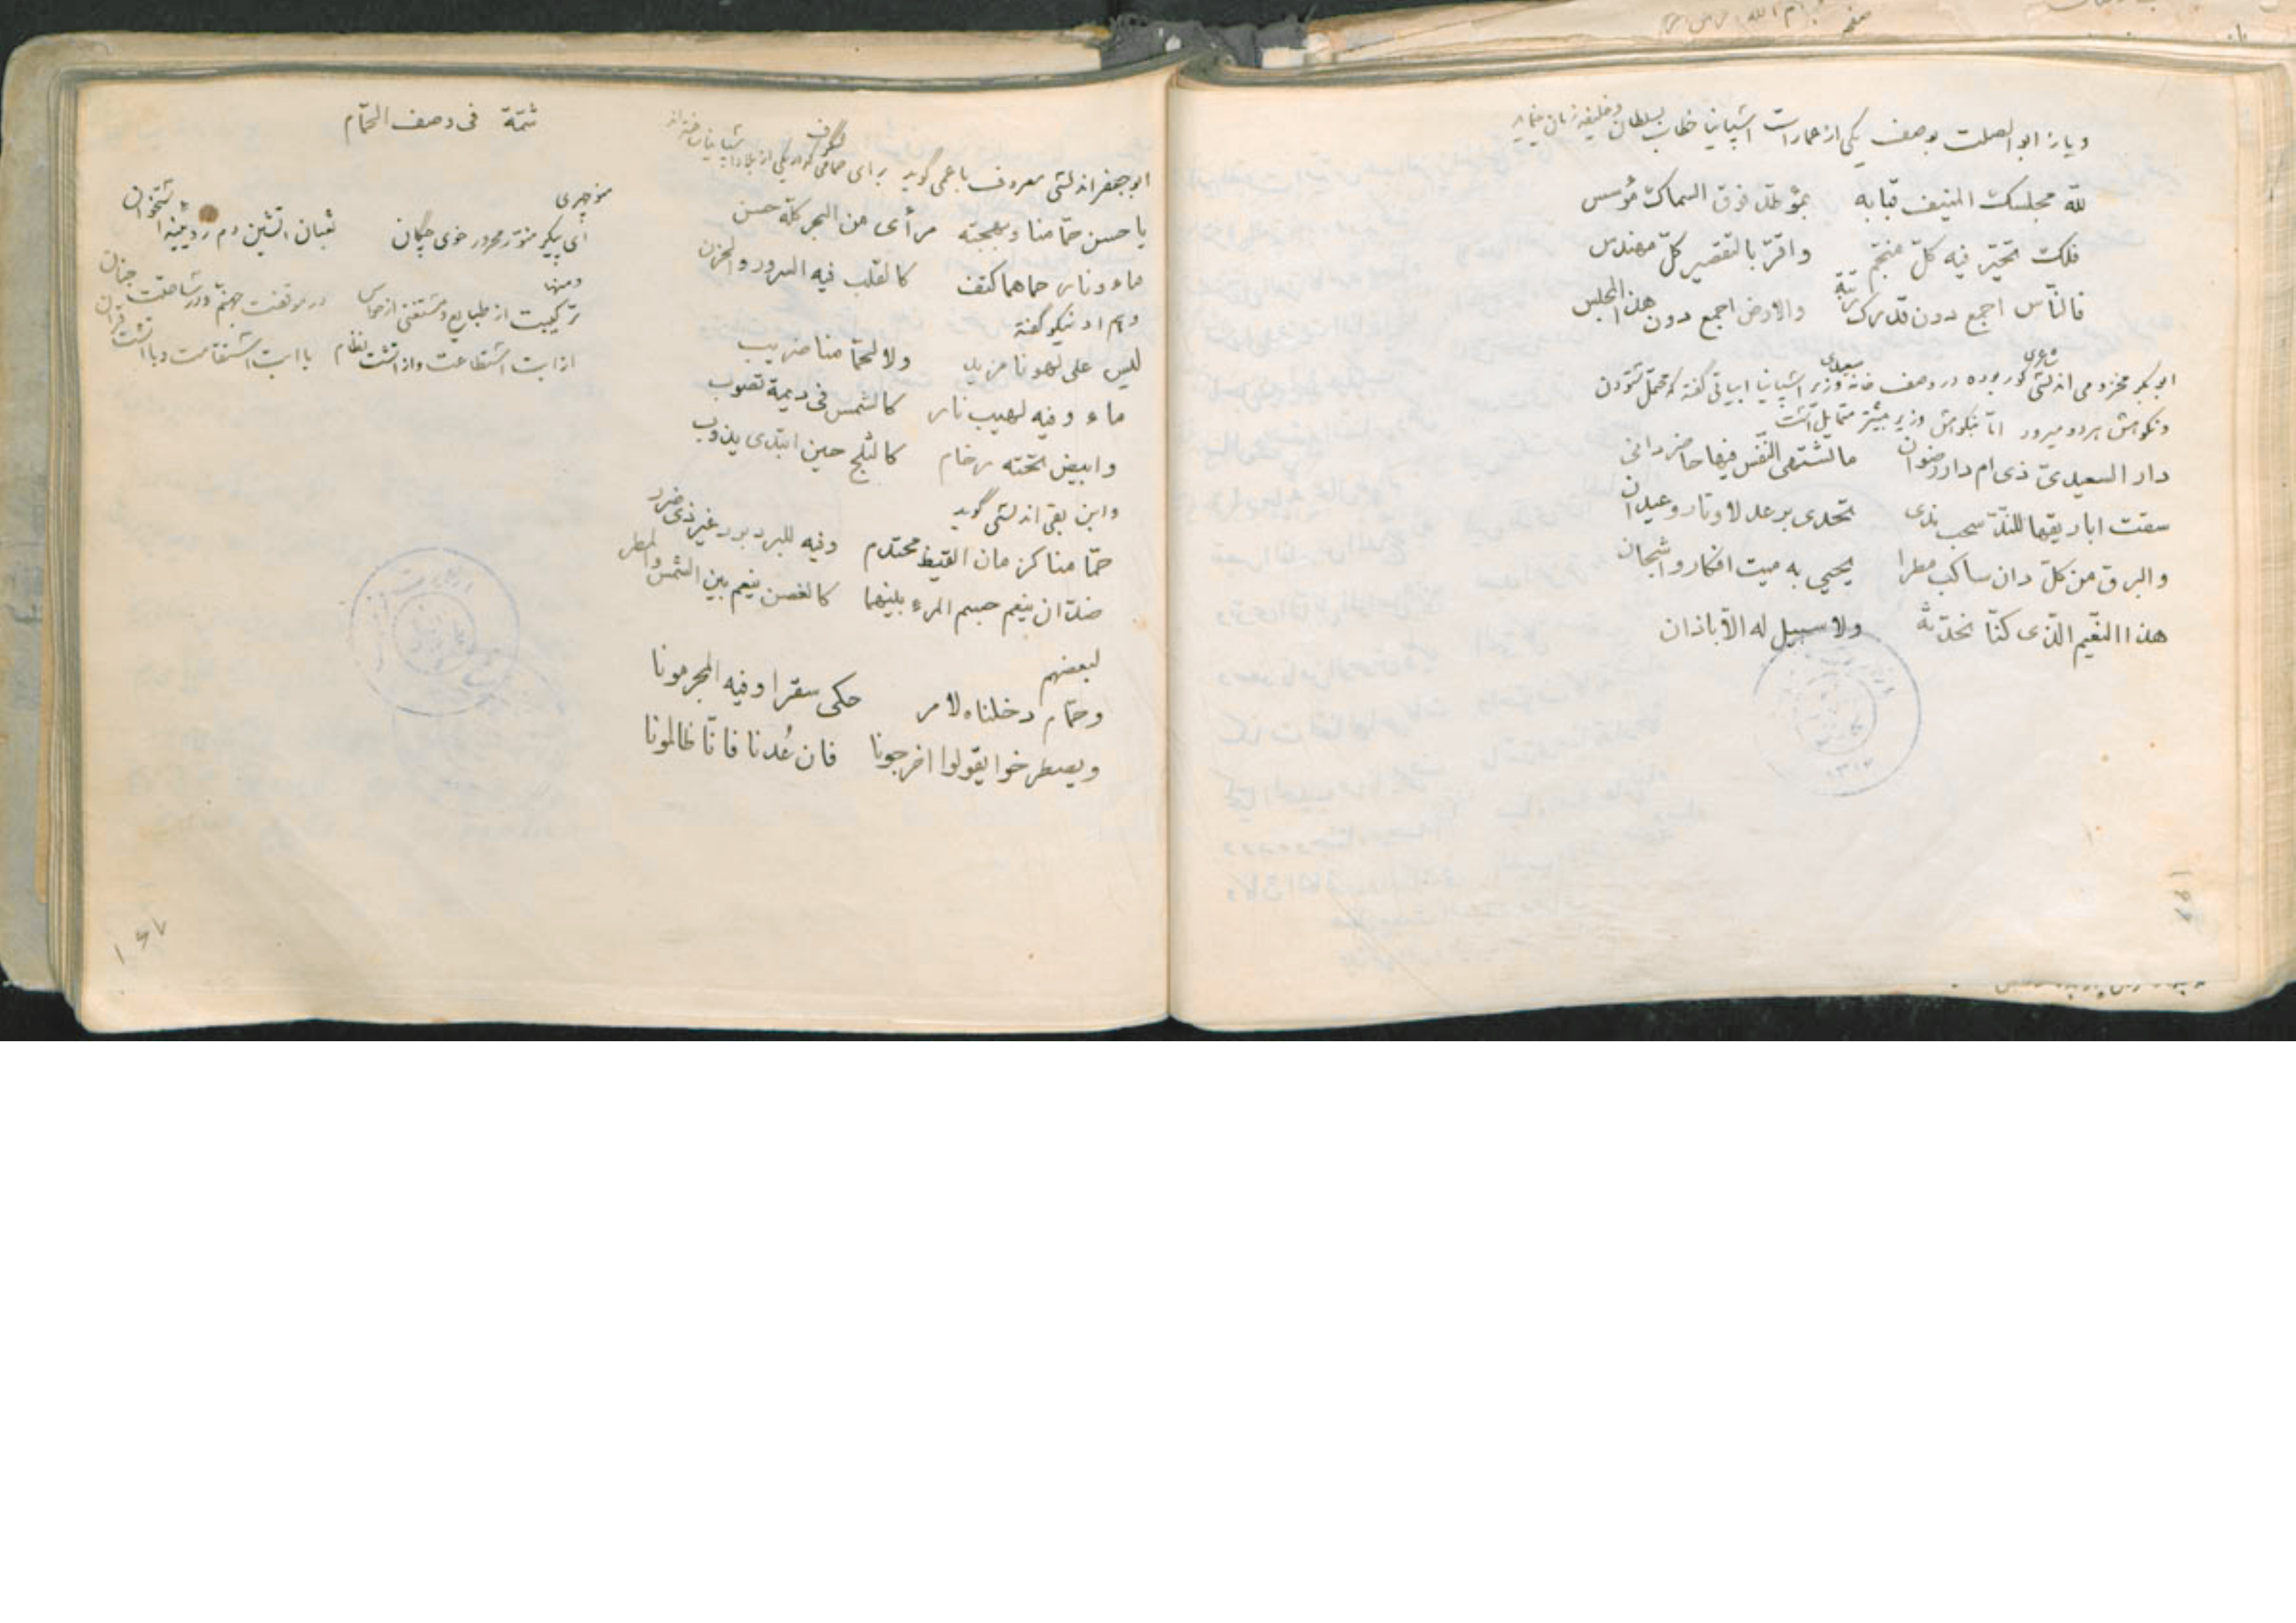 و باز ابو الصلت بوصف یکی از عمارات اشپانیا خطاب بسلطان و خلیفه زمان مینماید
لله مجلسک المنیف قبابه بموطد فوق السماک مؤسس
فلک تحیّر فیه کلّ منجّم واقرّ بالتقصیر کلّ مهندس
فالنّاس اجمع دون قدرک رتبة والارض اجمع دون هذا المجلس
ابو بکر مخزومی اندلسی شاعری کور بوده در وصف خانه وزیر سعیدی اشپانیا ابیاتی گفته که محتمل ستودن
و نکوهش هر دو میرود امّا نکوهش وزیر بیشتر متمایل است
دار السعیدیّ ذی ام دار رضوان ما تشتهی النّفس فیها حاضر دانی
سقت اباریقها للندّ سحب ندی تحدی برعد لاوتار وعیدان
والبرق من کلّ دان ساکب مطرا یحیی به میت افکار واشجان
هذا النّعیم الّذی کنّا نحدّثه ولا سبیل له الّا باذان
تتمّة فی وصف الحمّام
ابو جعفر اندلسی معروف باعمی گوید برای حمامی که در یکی از بلاد اشپانیا
یا حسن حمّامنا وبهجته مرأی من السحر کلّه حسن
ماء ونار حماهما کنف کالقلب فیه السرور والحزن
وهم او نیکو گفته
لیس علی لهونا مزید ولا لحمّامنا ضریب
ماء وفیه لهیب نار کالشمس فی دیمة تصوب
وابیض تحته رخام کالثلج حین ابتدی یذوب
وابن بقی اندلسی گوید
حمّامنا کزمان القیظ محتدم وفیه للبرد برد غیر ذی ضرر
ضدّان ینعم جسم المرء بینهما کالغصن ینعم بین الشمس والمطر
لبعضهم
وحمّام دخلناه لامر حکی سقرا وفیه المجرمونا
ویصطرخوا یقولوا اخرجونا فان عُدنا فانّا ظالمونا
منوچهری
ای پیکر منوّر محرور خوی چکان ثعبان آتشین دم روئینه استخوان
ومنها
ترکیبت از طبایع و مستغنی از حواس در موقفت جهنم و در ساحتت جنان
از آبت استطاعت و از آتشت نظام با آبت استقامت و با آتشت قران